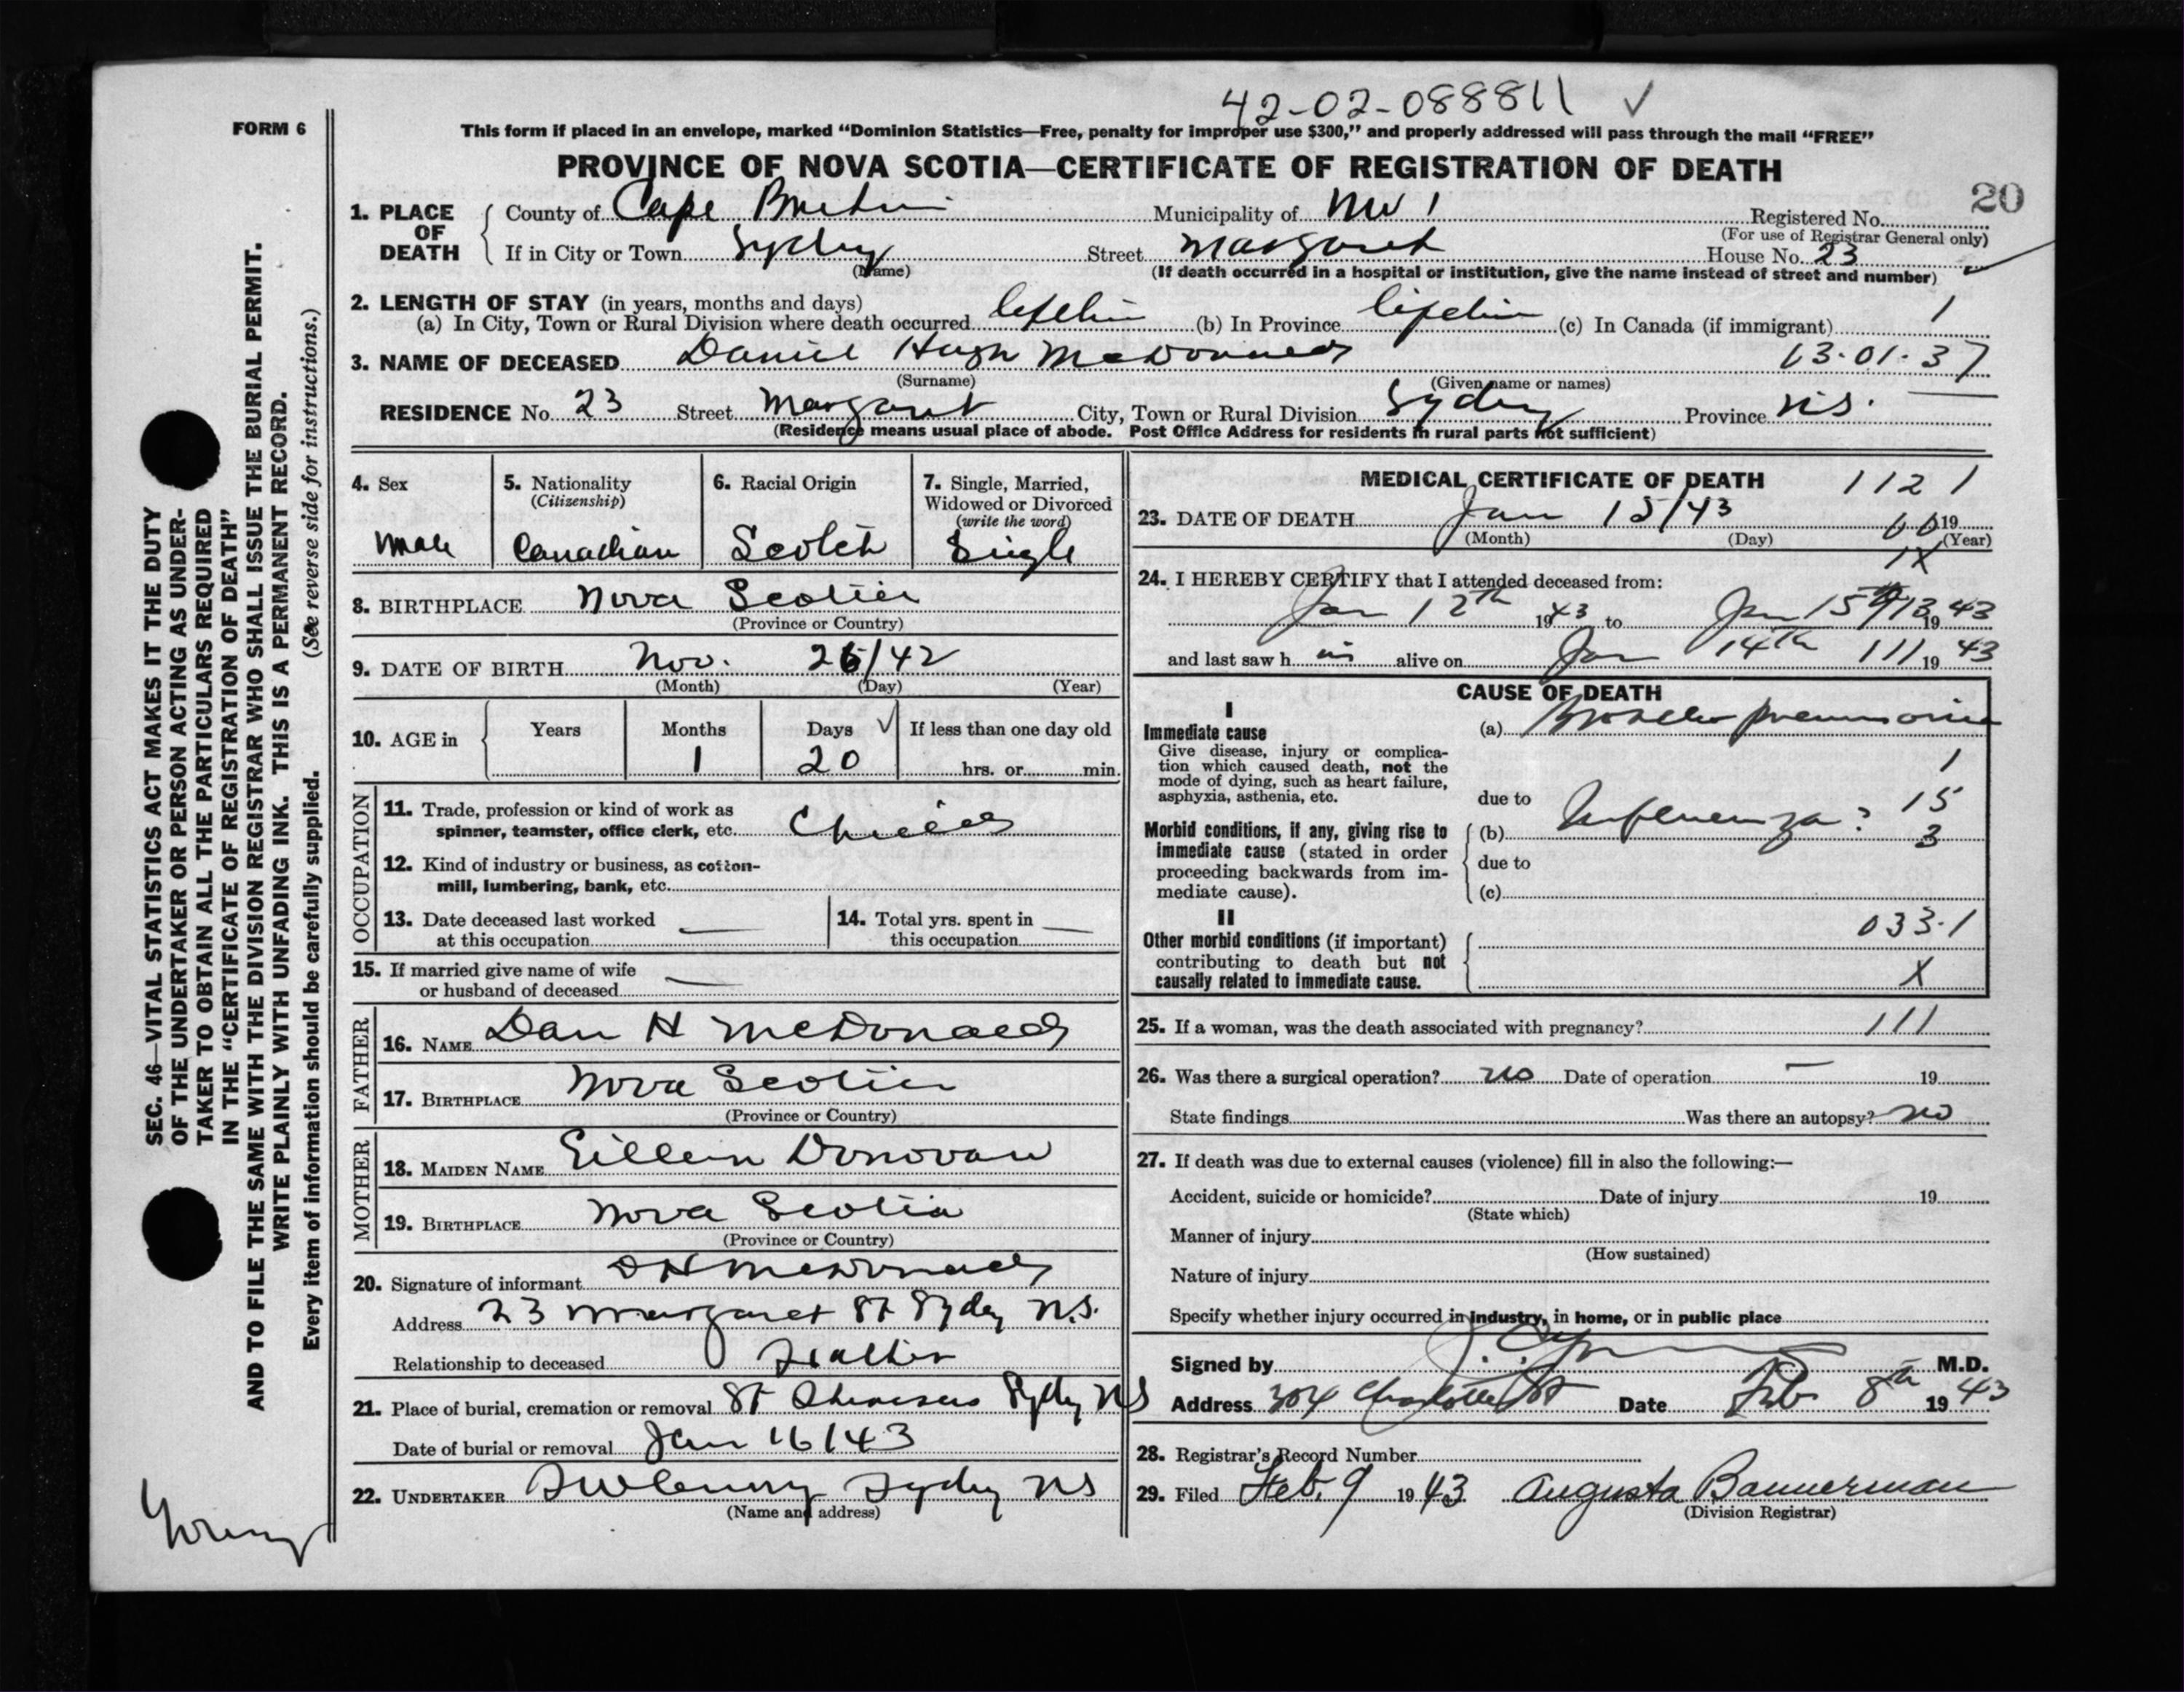 42-02-088811 ✓
FORM 6
This form if placed in an envelope, marked “Dominion Statistics—Free, penalty for improper use $300,” and properly addressed will pass through the mail “FREE”
PROVINCE OF NOVA SCOTIA—CERTIFICATE OF REGISTRATION OF DEATH
20
1. PLACE OF DEATH { County of Cape Breton Municipality of Registered No.
(For use of Registrar General only)
If in City or Town Sydney Street Margaret House No. 23
(Name) (If death occurred in a hospital or institution, give the name instead of street and number)
2. LENGTH OF STAY (in years, months and days)
(a) In City, Town or Rural Division where death occurred lifetime (b) In Province lifetime (c) In Canada (if immigrant) 1
3. NAME OF DECEASED Daniel Hugh McDonald 13-01-37
(Surname) (Given name or names)
RESIDENCE No. 23 Street Margaret City, Town or Rural Division Sydney Province N.S.
(Residence means usual place of abode. Post Office Address for residents in rural parts not sufficient)
4. Sex Male
5. Nationality (Citizenship) Canadian
6. Racial Origin Scotch
7. Single, Married, Widowed or Divorced (write the word) Single
8. BIRTHPLACE Nova Scotia
(Province or Country)
9. DATE OF BIRTH Nov. 26/42
(Month) (Day) (Year)
10. AGE in { Years Months 1 Days ✓ 20 If less than one day old hrs. or min.
OCCUPATION
11. Trade, profession or kind of work as
spinner, teamster, office clerk, etc. Child
12. Kind of industry or business, as cotton-
mill, lumbering, bank, etc.
13. Date deceased last worked
at this occupation —
14. Total yrs. spent in
this occupation —
15. If married give name of wife
or husband of deceased —
FATHER
16. NAME Dan H McDonald
17. BIRTHPLACE Nova Scotia
(Province or Country)
MOTHER
18. MAIDEN NAME Eilleen Donovan
19. BIRTHPLACE Nova Scotia
(Province or Country)
20. Signature of informant D H McDonald
Address 23 Margaret St Sydney N.S.
Relationship to deceased Father
21. Place of burial, cremation or removal St Sydney NS
Date of burial or removal Jan 16/43
22. UNDERTAKER Sydney NS
(Name and address)
MEDICAL CERTIFICATE OF DEATH 1121
23. DATE OF DEATH Jan 15/43 19
(Month) (Day) (Year)
24. I HEREBY CERTIFY that I attended deceased from:
Jan 12th 1943 to Jan 15th 1943
and last saw h im alive on Jan 14th 111 19 43
CAUSE OF DEATH
I
Immediate cause (a) Broncho pneumonia
Give disease, injury or complica-
tion which caused death, not the
mode of dying, such as heart failure,
asphyxia, asthenia, etc.
1
due to
15
Morbid conditions, if any, giving rise to
immediate cause (stated in order
proceeding backwards from im-
mediate cause).
(b) Influenza? 3
due to
(c)
II
033.1
Other morbid conditions (if important)
contributing to death but not
causally related to immediate cause.
X
25. If a woman, was the death associated with pregnancy? 111
26. Was there a surgical operation? no Date of operation — 19
State findings Was there an autopsy? no
27. If death was due to external causes (violence) fill in also the following:—
Accident, suicide or homicide? Date of injury 19
(State which)
Manner of injury
(How sustained)
Nature of injury
Specify whether injury occurred in industry, in home, or in public place
Signed by M.D.
Address 304 Charlotte St Date Feb 8th 1943
28. Registrar's Record Number
29. Filed Feb. 9 1943 Augusta Bannerman
(Division Registrar)
SEC. 46—VITAL STATISTICS ACT MAKES IT THE DUTY
OF THE UNDERTAKER OR PERSON ACTING AS UNDER-
TAKER TO OBTAIN ALL THE PARTICULARS REQUIRED
IN THE “CERTIFICATE OF REGISTRATION OF DEATH”
AND TO FILE THE SAME WITH THE DIVISION REGISTRAR WHO SHALL ISSUE THE BURIAL PERMIT.
WRITE PLAINLY WITH UNFADING INK. THIS IS A PERMANENT RECORD.
Every item of information should be carefully supplied. (See reverse side for instructions.)
Young